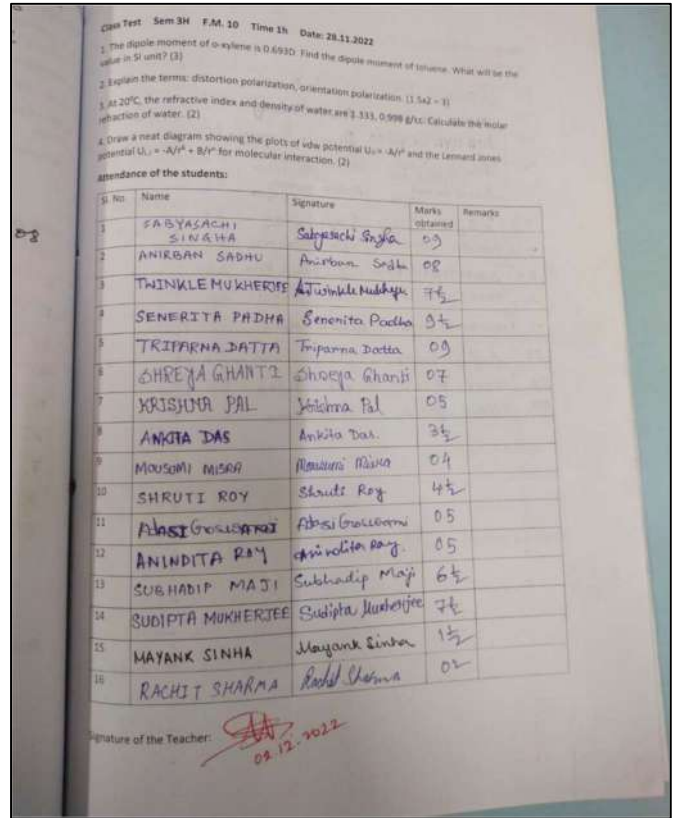 Class Test Sem 3H F.M. 10 Time 1h Date: 28.11.2022
1. The dipole moment of o-xylene is 0.693D. Find the dipole moment of toluene. What will be the
value in SI unit? (3)
2. Explain the terms: distortion polarization, orientation polarization. (1.5x2 = 3)
3. At 20°C, the refractive index and density of water are 1.333, 0.998 g/cc. Calculate the molar
refraction of water. (2)
4. Draw a neat diagram showing the plots of vdw potential = -A/r⁶ and the Lennard zones
potential = -A/r⁶ + for molecular interaction. (2)
Attendance of the students:
Sl. No. Name Signature Marks obtained Remarks
1 SABYASACHI SINGHA Sabyasachi Singha 09
2 ANIRBAN SADHU Anirban Sadhu 08
3 TWINKLE MUKHERJEE Twinkle Mukherjee 7½
4 SENERITA PADHA Senerita Padha 9½
5 TRIPARNA DATTA Triparna Datta 09
6 SHREYA GHANTI Shreya Ghanti 07
7 KRISHNA PAL Krishna Pal 05
8 ANKITA DAS Ankita Das. 3½
9 MOUSOMI MISRA Mousumi Misra 04
10 SHRUTI ROY Shruti Roy 4½
11 ADASI GOSWAMI Adasi Goswami 05
12 ANINDITA ROY Anindita Roy. 05
13 SUBHADIP MAJI Subhadip Maji 6½
14 SUDIPTA MUKHERJEE Sudipta Mukherjee 7½
15 MAYANK SINHA Mayank Sinha 1½
16 RACHIT SHARMA Rachit Sharma 02
Signature of the Teacher:
02.12.2022